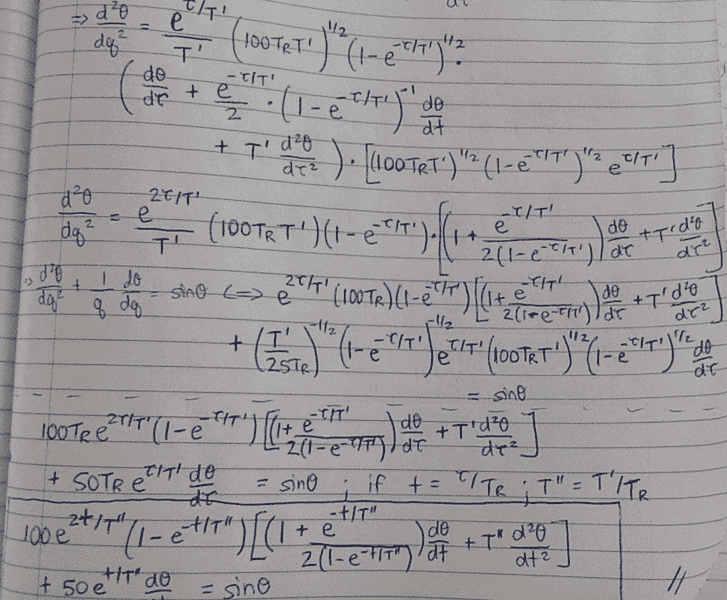 ⇒ d²θ/dq² = e^(τ/T')/T' (100T_R T')^(1/2) (1-e^(-τ/T'))^(1/2) ·
( dθ/dτ + e^(-τ/T')/2 · (1-e^(-τ/T'))^(-1) dθ/dt
+ T' d²θ/dτ² ) · [(100T_R T')^(1/2) (1-e^(-τ/T'))^(1/2) e^(τ/T')]
d²θ/dq² = e^(2τ/T')/T' (100T_R T')(1-e^(-τ/T')) · [(1 + e^(-τ/T')/2(1-e^(-τ/T'))) dθ/dτ + T' d²θ/dτ²]
⇒ d²θ/dq² + 1/q dθ/dq = sinθ <=> e^(2τ/T') (100T_R)(1-e^(-τ/T')) [(1+ e^(-τ/T')/2(1-e^(-τ/T'))) dθ/dτ + T' d²θ/dτ²]
+ (T'/25T_R)^(-1/2) (1-e^(-τ/T'))^(-1/2) e^(τ/T') (100T_R T')^(1/2) (1-e^(-τ/T'))^(1/2) dθ/dτ
= sinθ
100T_R e^(2τ/T') (1-e^(-τ/T')) [(1+ e^(-τ/T')/2(1-e^(-τ/T'))) dθ/dτ + T' d²θ/dτ²]
+ 50T_R e^(τ/T') dθ/dτ = sinθ ; if t = τ/T_R ; T" = T'/T_R
100e^(2t/T") (1-e^(-t/T")) [(1 + e^(-t/T")/2(1-e^(-t/T"))) dθ/dt + T" d²θ/dt²]
+ 50e^(t/T") dθ = sinθ //